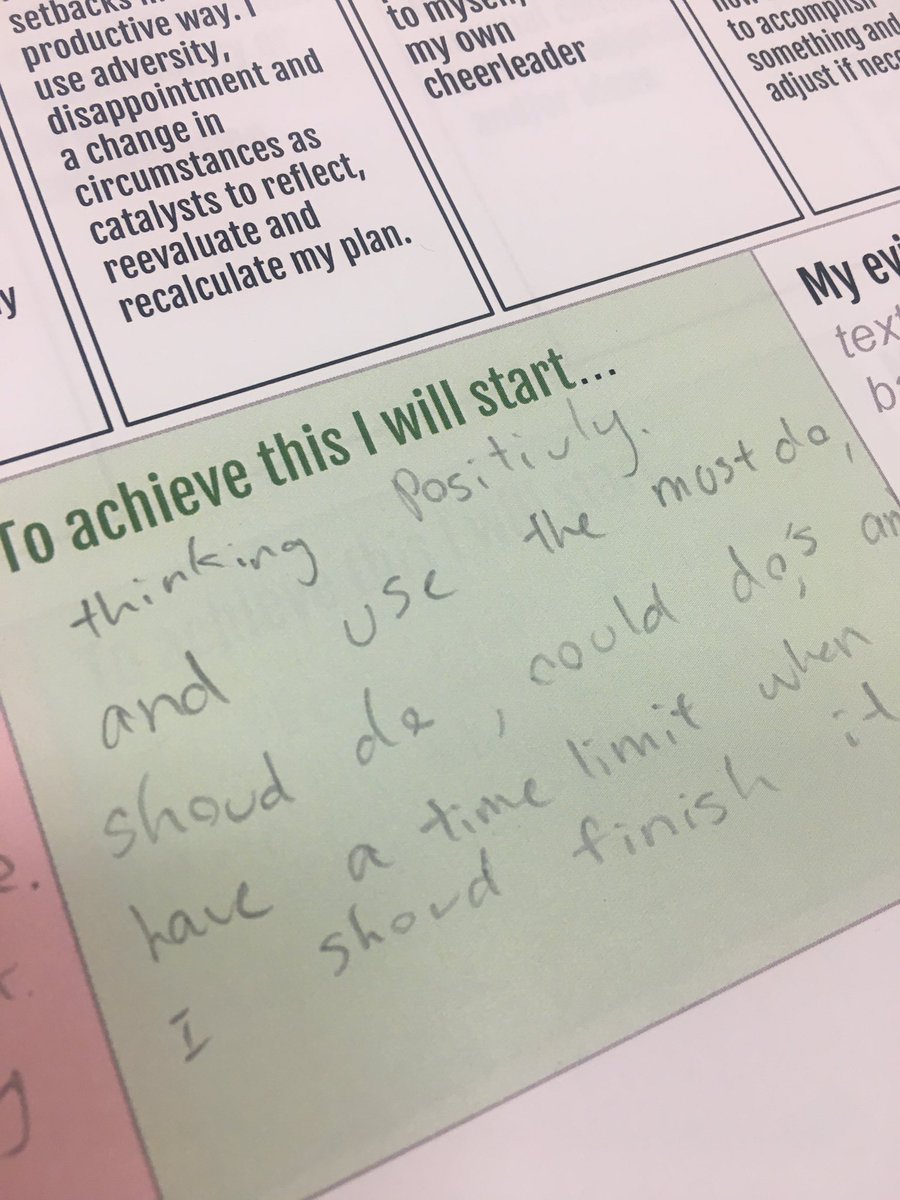 setbacks in
productive way. I
use adversity,
disappointment and
a change in
circumstances as
catalysts to reflect,
reevaluate and
recalculate my plan.
to myself,
my own
cheerleader
to accomplish
something and
adjust if
To achieve this I will start...
thinking Positivly.
and use the must do,
shoud do, could do's, an
have a time limit when
I shoud finish it
My evi
text